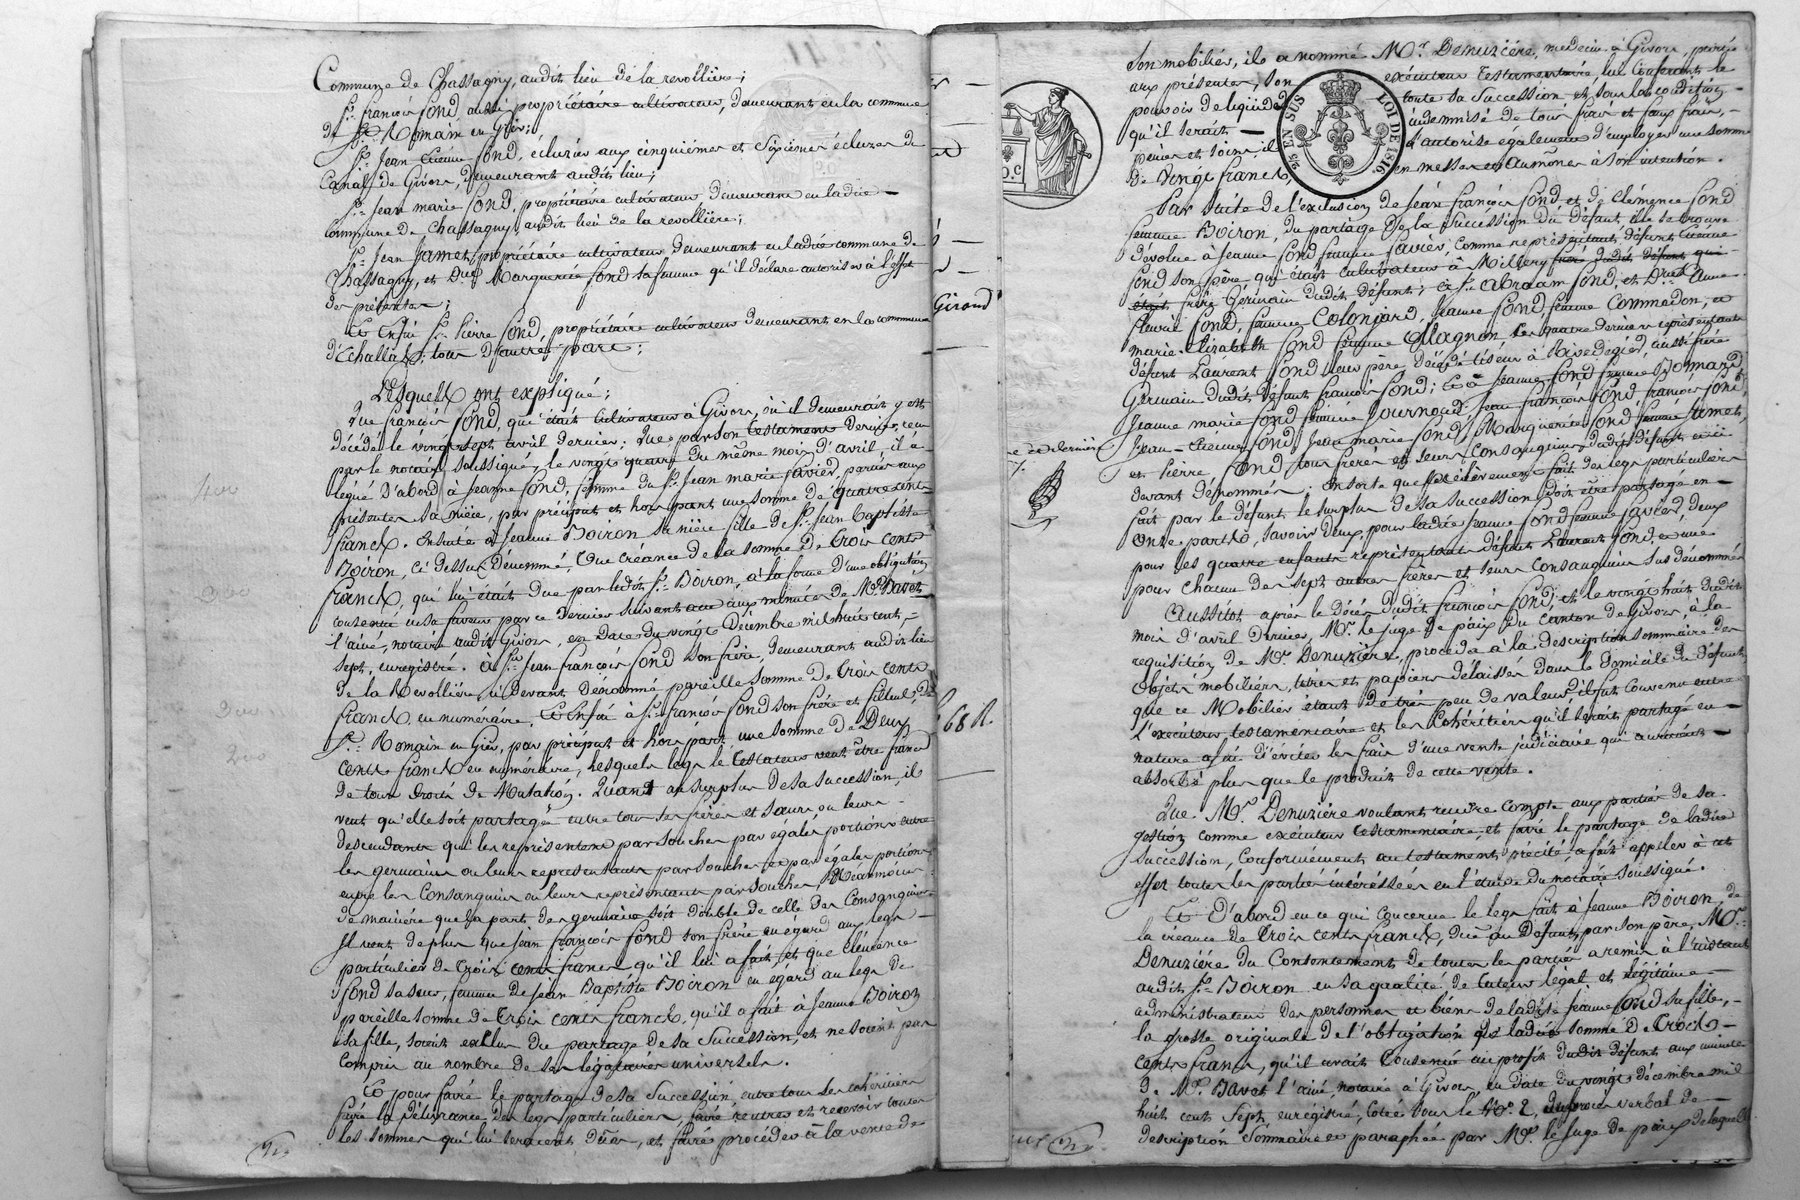 Commune de Chassagny, audit lieu de la revollière;
Sr. françois fond, aussi propriétaire cultivateur, demeurant en la commune
de St. Romain en Gier;
Sr. Jean Etienne fond, éclusier aux cinquièmes et sixièmes écluses du
Canal de Givors, demeurant audit lieu;
Sr. Jean marie fond, propriétaire cultivateur demeurant en ladite —
commune de Chassagny, audit lieu de la revollière;
Sr. Jean Jamet, propriétaire cultivateur demeurant en ladite commune de
Chassagny, et De. Marguerite fond sa femme qu'il déclare autoriser à l'effet
des présentes;
Et Enfin Sr. Pierre fond, propriétaire cultivateur demeurant en la commune
d'Echallas; tous d'autre part;
Lesquels ont expliqué;
Que françois fond, qui était cultivateur à Givors, où il demeurait y est
décédé le vingt sept avril dernier; Que par son testament dernier, reçu
par le notaire soussigné, le vingt quatre du même mois d'avril, il a
légué D'abord à Jeanne fond, femme du Sr. Jean marie favier, parties aux
présentes sa nièce, par préciput et hors part une somme de quatre cents
francs. Ensuite à Jeanne Boiron sa nièce fille de Sr. Jean Baptiste
Boiron, ci dessus dénommé, Une créance de la somme de trois cents
francs, qui lui était due par ledit Sr. Boiron, à la forme d'une obligation
consentie en sa faveur par ce dernier suivant acte aux minutes de Me. Bavet
l'aîné, notaire audit Givors, en date du vingt Décembre mil huit cent —
sept, enregistré. a Sr. Jean françois fond son frère, demeurant audit lieu
de la Revollière ci devant dénommé pareille somme de trois cents
francs en numéraire. Et Enfin à Sr. françois fond son frère et filleul, de
St. Romain en Gier, par préciput et hors part une somme de Deux
cents francs en numéraire, lesquels legs le testateur veut être francs
de tous droits de Mutation. Quant au surplus de sa succession, il
veut qu'elle soit partagée entre tous ses frères et sœurs ou leurs —
descendants qui les représentent par souches par égales portions entre
les germains ou leurs représentants par souches et par égales portions
entre les Consanguins ou leurs représentants par souches, Néanmoins
de manière que la part des germains soit double de celle des Consanguins
Il veut de plus que Jean françois fond son frère eu égard aux legs —
particulier de Trois cents francs qu'il lui a fait, et que clémence
fond sa sœur, femme de Jean Baptiste Boiron eu égard au legs de
pareille somme de trois cents francs, qu'il a fait à Jeanne Boiron
sa fille, soient exclus du partage de sa succession, et ne soient pas
compris au nombre de ses légataires universels.
Et pour faire le partage de sa succession, entre tous ses cohéritiers
faire la délivrance des legs particuliers, faire rentrer et recevoir toutes
les sommes qui lui seraient dûes, et faire procéder à la vente de
400
300
300
200
Giroud
68 R.
son mobilier, il a nommé Mr. Denuzière, medecin à Givors, partie
aux présentes, son exécuteur testamentaire, lui conférant le
pouvoir de liquider toute sa succession et sous la condition —
qu'il serait — indemnisé de tous frais et faux frais, —
peines et soins, il l'autorise également d'employer une somme
de vingt francs, en messes ou aumônes à son intention.
25 EN SUS
LOI DE 1816
Par suite de l'exclusion de Jean françois fond et de Clémence fond
femme Boiron, du partage de la succession du défunt, elle se trouve
dévolue à Jeanne fond femme favier, comme représentant défunt Etienne
fond son père, qui était cultivateur à Millery
frère Germain dudit défunt; à Sr. abraam fond, et Des. Anne
fleurie fond, femme Colonjard, Jeanne fond, femme Commedon, et
marie Elizabeth fond femme Magnon, les quatre derniers représentants
défunt Laurent fond leur père décédé à Rivedegier, aussi frère
Germain dudit défunt françois fond; Et à Jeanne fond femme Bomand,
Jeanne marie fond femme Journoud, Jean françois fond, françois fond,
Jean-Etienne fond, Jean marie fond, Marguerite fond femme Jamet,
et Pierre fond tous frères et sœurs consanguins dudit défunt et ci
devant dénommés. En sorte que prélèvement fait des legs particuliers
fait par le défunt le surplus de sa succession doit être partagé en —
onze parts, savoir deux pour ladite Jeanne fond femme favier, deux
pour les quatre enfants représentant défunt Laurent fond, et une
pour chacun des sept autres frères et sœurs consanguins sus dénommés
Aussitôt après le décès dudit françois fond, et le vingt huit dudit
mois d'avril dernier, Mr. le Juge de paix du canton de Givors, à la
requisition de Mr. Denuzière, proceda à la description sommaire des
objets mobiliers, titres et papiers délaissés dans le domicile du défunt
que ce Mobilier étant de très peu de valeur il fut convenu entre
l'exécuteur testamentaire et les cohéritiers qu'il serait partagé en —
nature afin d'éviter les frais d'une vente judiciaire qui auraient —
absorbé plus que le produit de cette vente.
Que Mr. Denuzière voulant rendre compte aux parties de sa
gestion comme exécuteur testamentaire, et faire le partage de ladite
succession, conformément au testament précité, a fait appeler à cet
effet toutes les parties intéressées en l'étude du notaire soussigné.
Et D'abord en ce qui concerne le legs fait à Jeanne Boiron, de
la créance de trois cents francs, dûe au défunt par son père, Mr.
Denuzière du Consentement de toutes les parties a remis à l'instant
audit Sr. Boiron en sa qualité de tuteur légal et légitime —
administrateur des personnes et biens de ladite Jeanne fond sa fille, —
la grosse originale de l'obligation de ladite somme de trois —
cents francs, qu'il avait consentie au profit dudit défunt aux minutes
de Me. Bavet l'aîné, notaire à Givors, en date du vingt décembre mil
huit cent sept, enregistré, cotée sous le No. 2, du procès verbal de —
description sommaire et paraphée par Mr. le Juge de paix, de laquelle